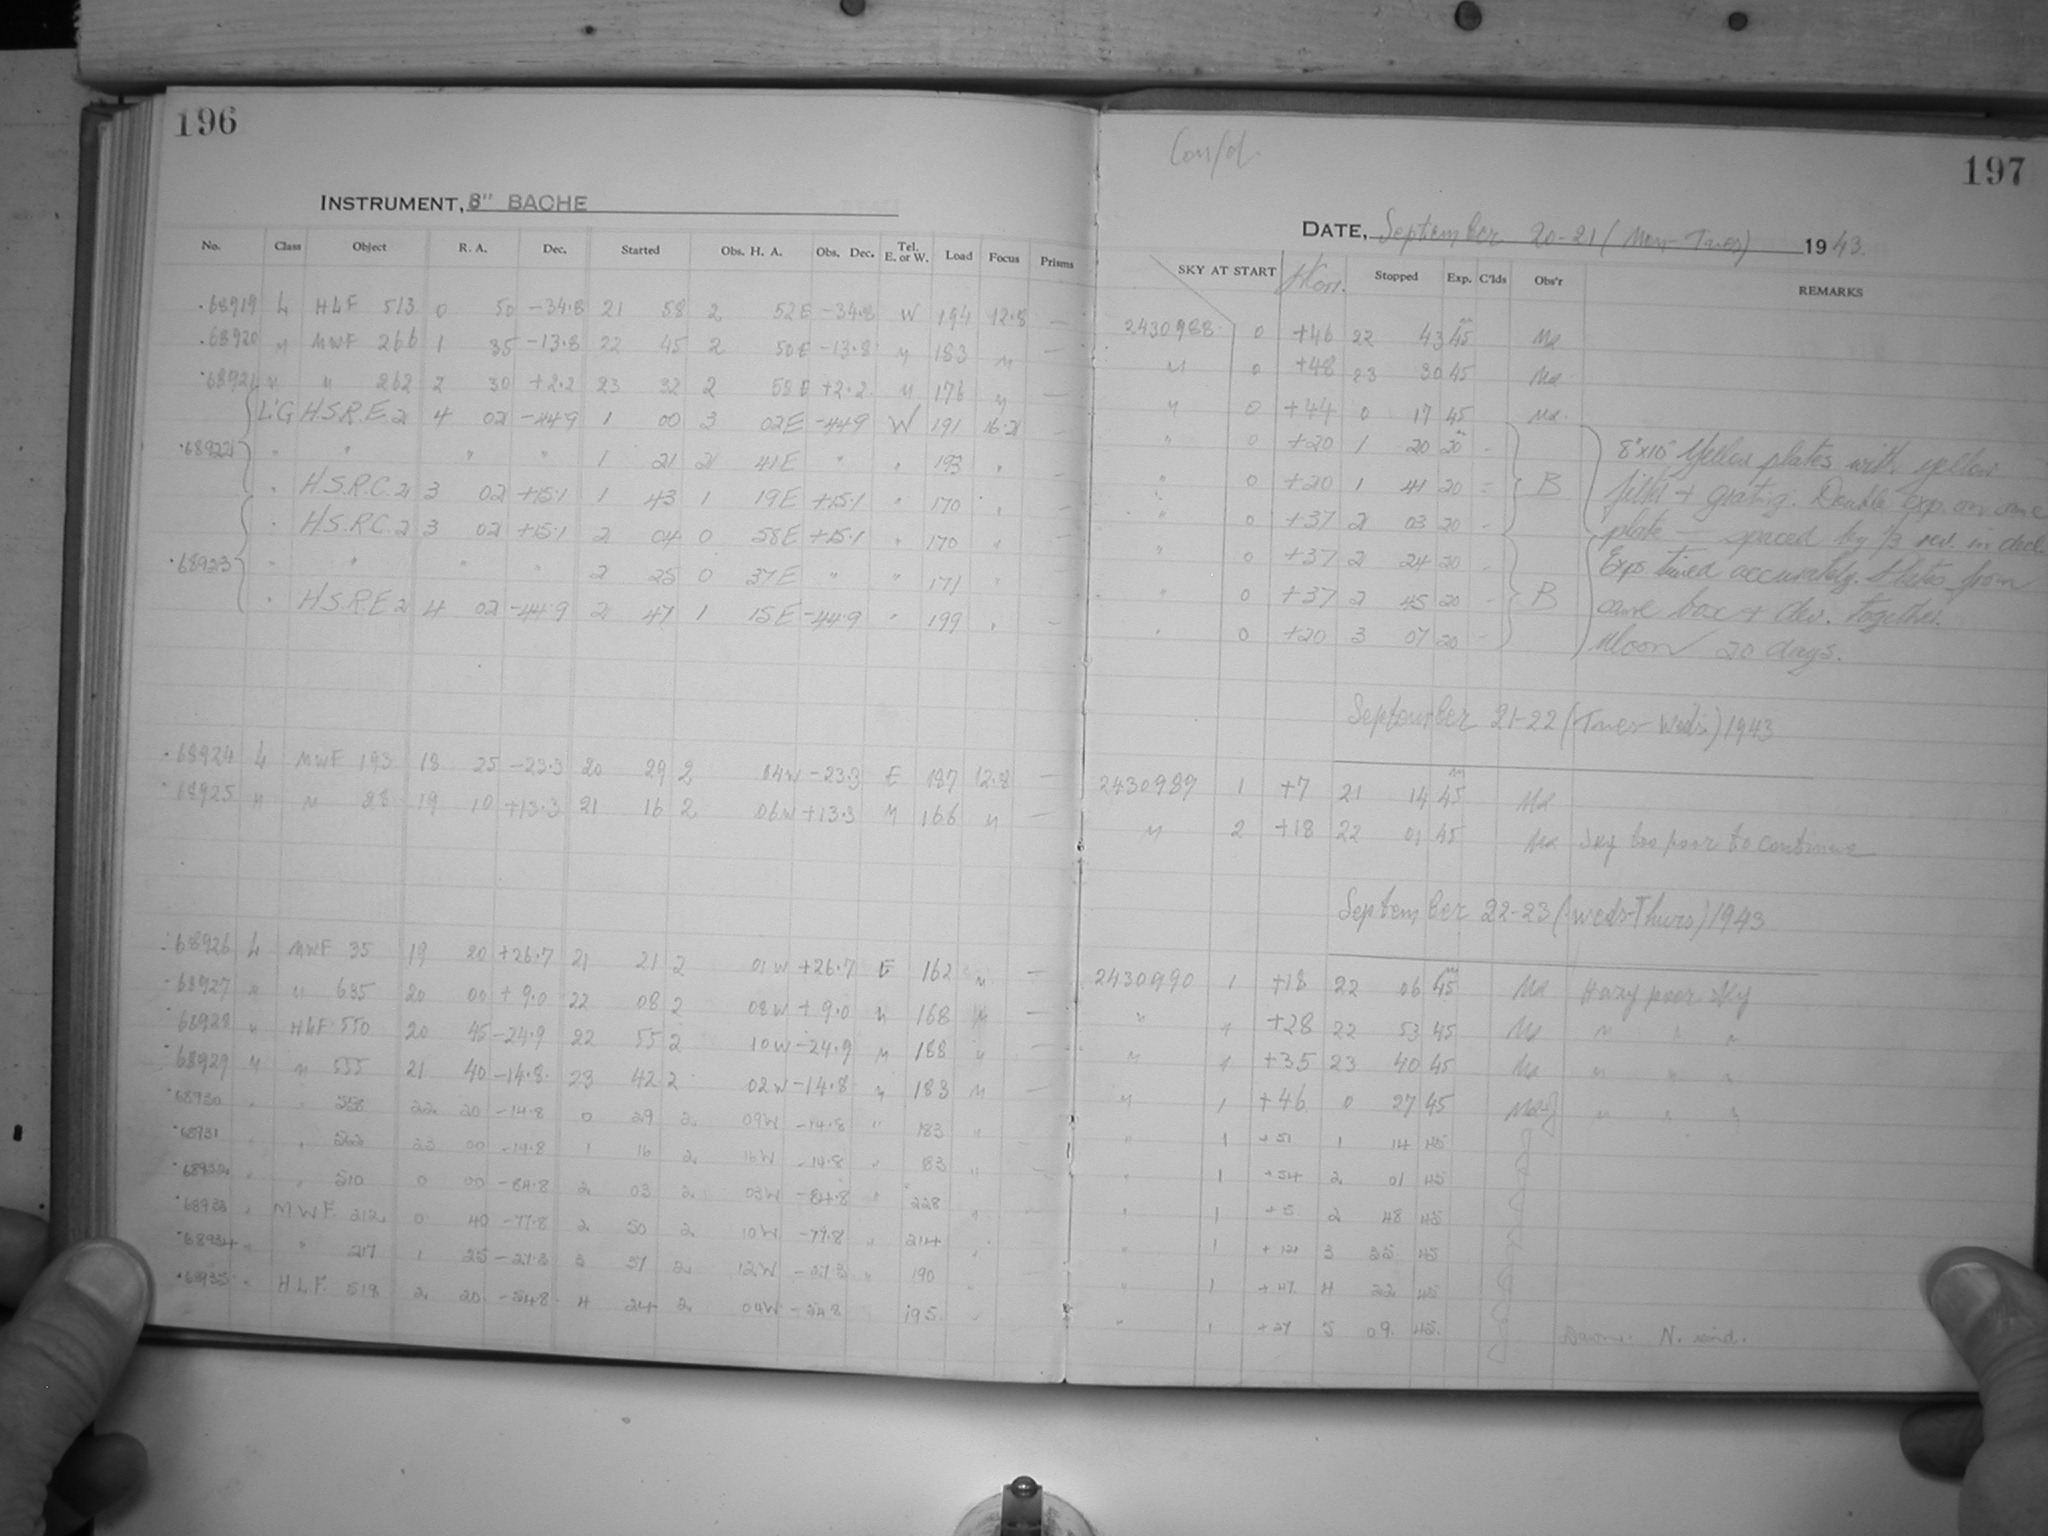 196
INSTRUMENT, 8" BACHE
No. Class Object R. A. Dec. Started Obs. H. A. Obs. Dec. Tel. E. or W. Load Focus Prisms
68919 L HLF 513 0 50 -34.8 21 58 2 52E -34.8 W 194 12.8 —
68920 " MWF 266 1 35 -13.8 22 45 2 50E -13.8 " 183 " —
68921 " " 262 2 30 +2.2 23 32 2 58E +2.2 " 176 " —
L'G H.S.R.E. 2 4 02 -44.9 1 00 3 02E -44.9 W 191 16.2 —
68922 " " " " 1 21 2 41E " " 193 "
" H.S.R.C. 2 3 02 +15.1 1 43 1 19E +15.1 " 170 "
" H.S.R.C. 2 3 02 +15.1 2 04 0 58E +15.1 " 170 "
68923 " " " " 2 25 0 37E " " 171 "
" H.S.R.E 2 4 02 -44.9 2 47 1 15E -44.9 " 199 " —
68924 L MWF 193 18 25 -23.3 20 29 2 04W -23.3 E 187 12.8 —
68925 " " 28 19 10 +13.3 21 16 2 06W +13.3 " 166 " —
68926 L MWF 35 19 20 +26.7 21 21 2 01W +26.7 E 162 " —
68927 " " 635 20 00 +9.0 22 08 2 08W +9.0 " 168 " —
68928 " HLF 550 20 45 -24.9 22 55 2 10W -24.9 " 188 " —
68929 " " 555 21 40 -14.8 23 42 2 02W -14.8 " 183 " —
68930 " " 558 22 20 -14.8 0 29 2 09W -14.8 " 183 "
68931 " " 23 00 -14.8 1 16 2 16W -14.8 " 83 "
68932 " " 510 0 00 -84.8 2 03 2 03W -84.8 " 228 "
68933 " MWF. 212 0 40 -77.8 2 50 2 10W -77.8 " 214 "
68934 " " 217 1 25 -27.3 3 37 2 12W -27.3 " 190 "
68935 " H.L.F. 518 2 20 -54.8 4 24 2 04W -54.8 195 "
Con/d.
197
DATE, September 20-21 (Mon-Tues) 1943.
SKY AT START Hor. Stopped Exp. C'lds Obs'r REMARKS
2430988 0 +46 22 43 45 Ma
" 0 +48 23 30 45 Ma
" 0 +44 0 17 45 Ma.
" 0 +20 1 20 20 -
" 0 +20 1 41 20 - B
" 0 +37 2 03 20 -
" 0 +37 2 24 20 -
" 0 +37 2 45 20 - B
" 0 +20 3 07 20 -
8"x10" Yellow plates with yellow
filter + grating. Double exp. on same
plate — spaced by 1/3 rev. in decl.
Exps. timed accurately. Plates from
same box + dev. together.
Moon 20 days.
September 21-22 (Tues-Weds) 1943
2430989 1 +7 21 14 45 Ma
" 2 +18 22 01 45 Ma Sky too poor to continue
September 22-23 (Weds-Thurs) 1943
2430990 1 +18 22 06 45 Ma Hazy poor sky
" 1 +28 22 53 45 Ma " " "
" 1 +35 23 40 45 Ma " " "
" 1 +46 0 27 45 " " "
" 1 +51 1 14 45
" 1 +54 2 01 45
" 1 +5 2 48 45
" 1 3 35 45
" 1 +47 4 22 45
" 1 +27 5 09 45 Dawn. N. wind.